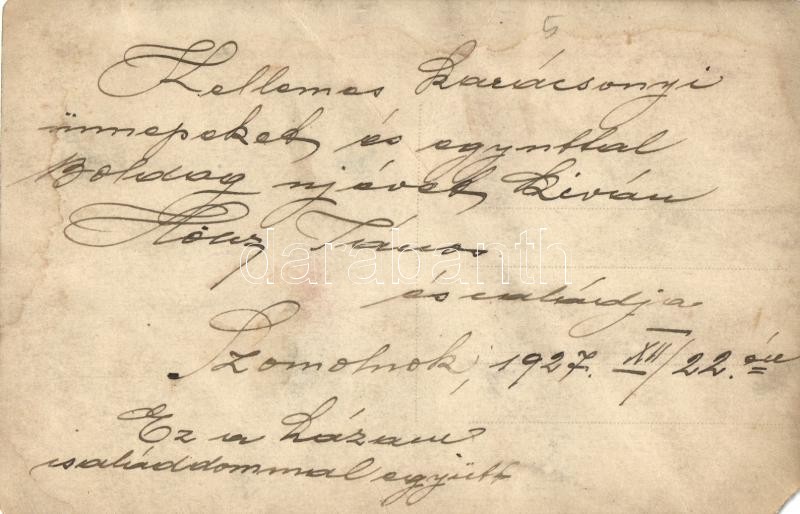 5
Kellemes karácsonyi
ünnepeket és egynttal
Boldog ujévet kiván
János
és családja
Szomolnok, 1927. XII/22.én
Ez a házam
családdommal együtt
darabanth